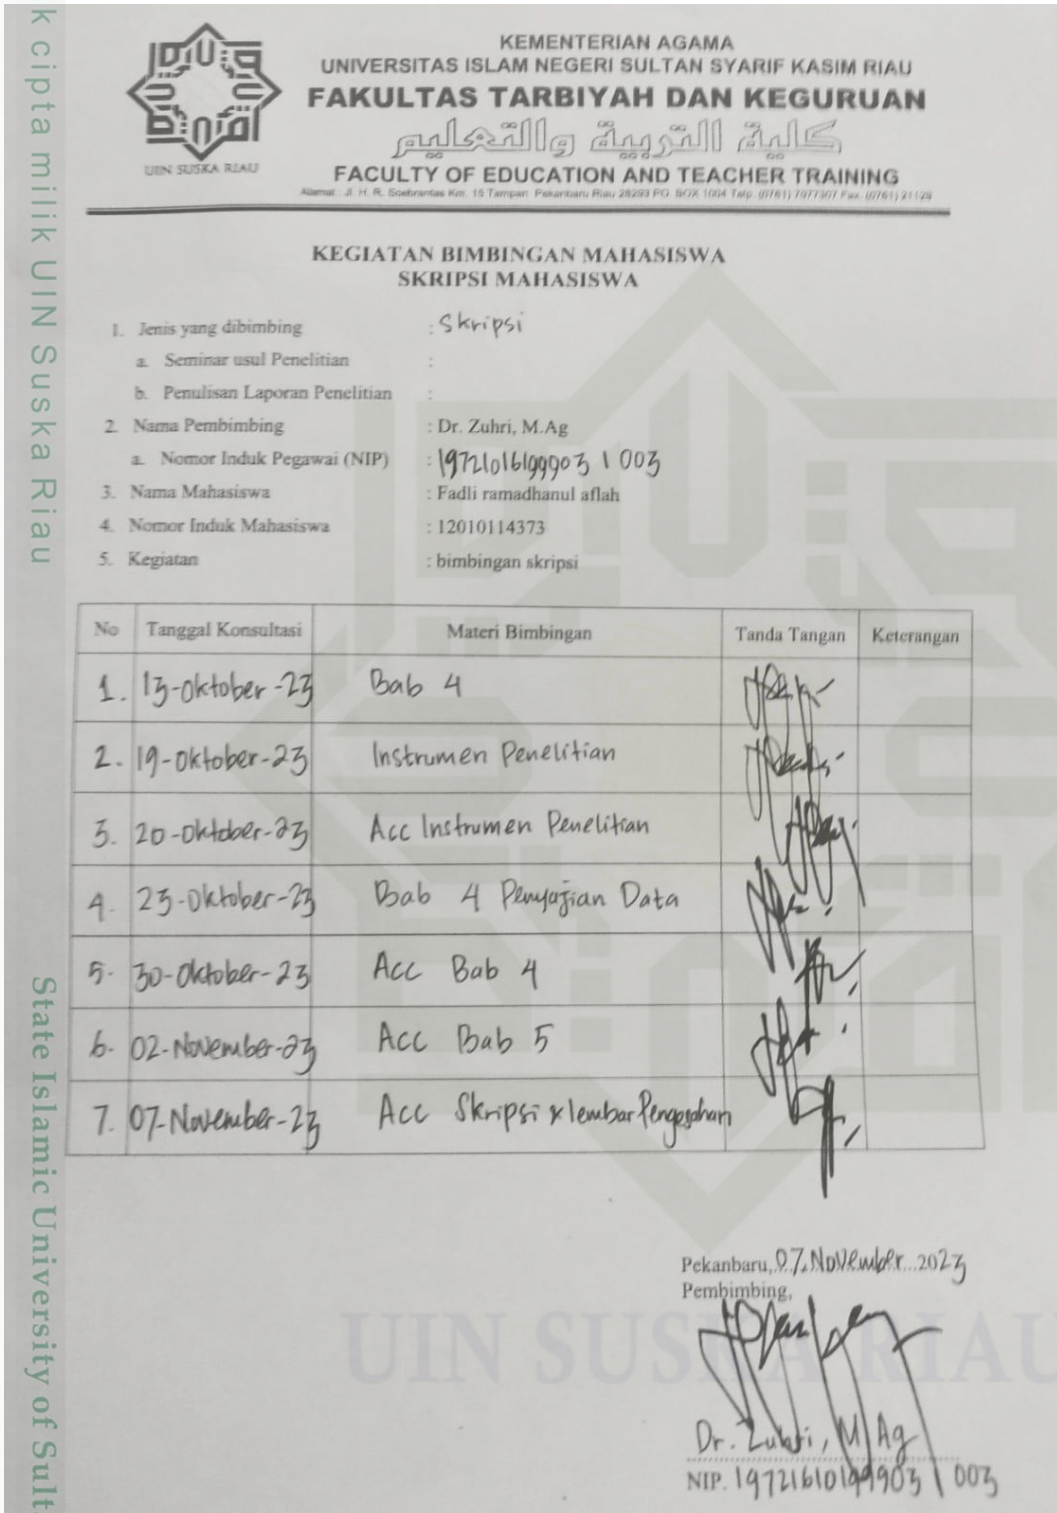 k cipta milik UIN Suska Riau
State Islamic University of Sult
UIN SUSKA RIAU
KEMENTERIAN AGAMA
UNIVERSITAS ISLAM NEGERI SULTAN SYARIF KASIM RIAU
FAKULTAS TARBIYAH DAN KEGURUAN
كلية التربية والتعليم
FACULTY OF EDUCATION AND TEACHER TRAINING
Alamat : Jl. H. R. Soebrantas Km. 15 Tampan Pekanbaru Riau 28293 PO. BOX 1004 Telp. (0761) 7077307 Fax. (0761) 21129
KEGIATAN BIMBINGAN MAHASISWA
SKRIPSI MAHASISWA
1. Jenis yang dibimbing : Skripsi
a. Seminar usul Penelitian :
b. Penulisan Laporan Penelitian :
2. Nama Pembimbing : Dr. Zuhri, M.Ag
a. Nomor Induk Pegawai (NIP) : 19721016199903 1 003
3. Nama Mahasiswa : Fadli ramadhanul aflah
4. Nomor Induk Mahasiswa : 12010114373
5. Kegiatan : bimbingan skripsi
No Tanggal Konsultasi Materi Bimbingan Tanda Tangan Keterangan
1. 13-Oktober-23 Bab 4
2. 19-Oktober-23 Instrumen Penelitian
3. 20-Oktober-23 Acc Instrumen Penelitian
4. 23-Oktober-23 Bab 4 Penyajian Data
5. 30-Oktober-23 Acc Bab 4
6. 02-November-23 Acc Bab 5
7. 07-November-23 Acc Skripsi & lembar Pengesahan
Pekanbaru, 07. November 2023
Pembimbing,
UIN SUSKA RIAU
Dr. Zuhri, M.Ag
NIP. 197216101999031 003